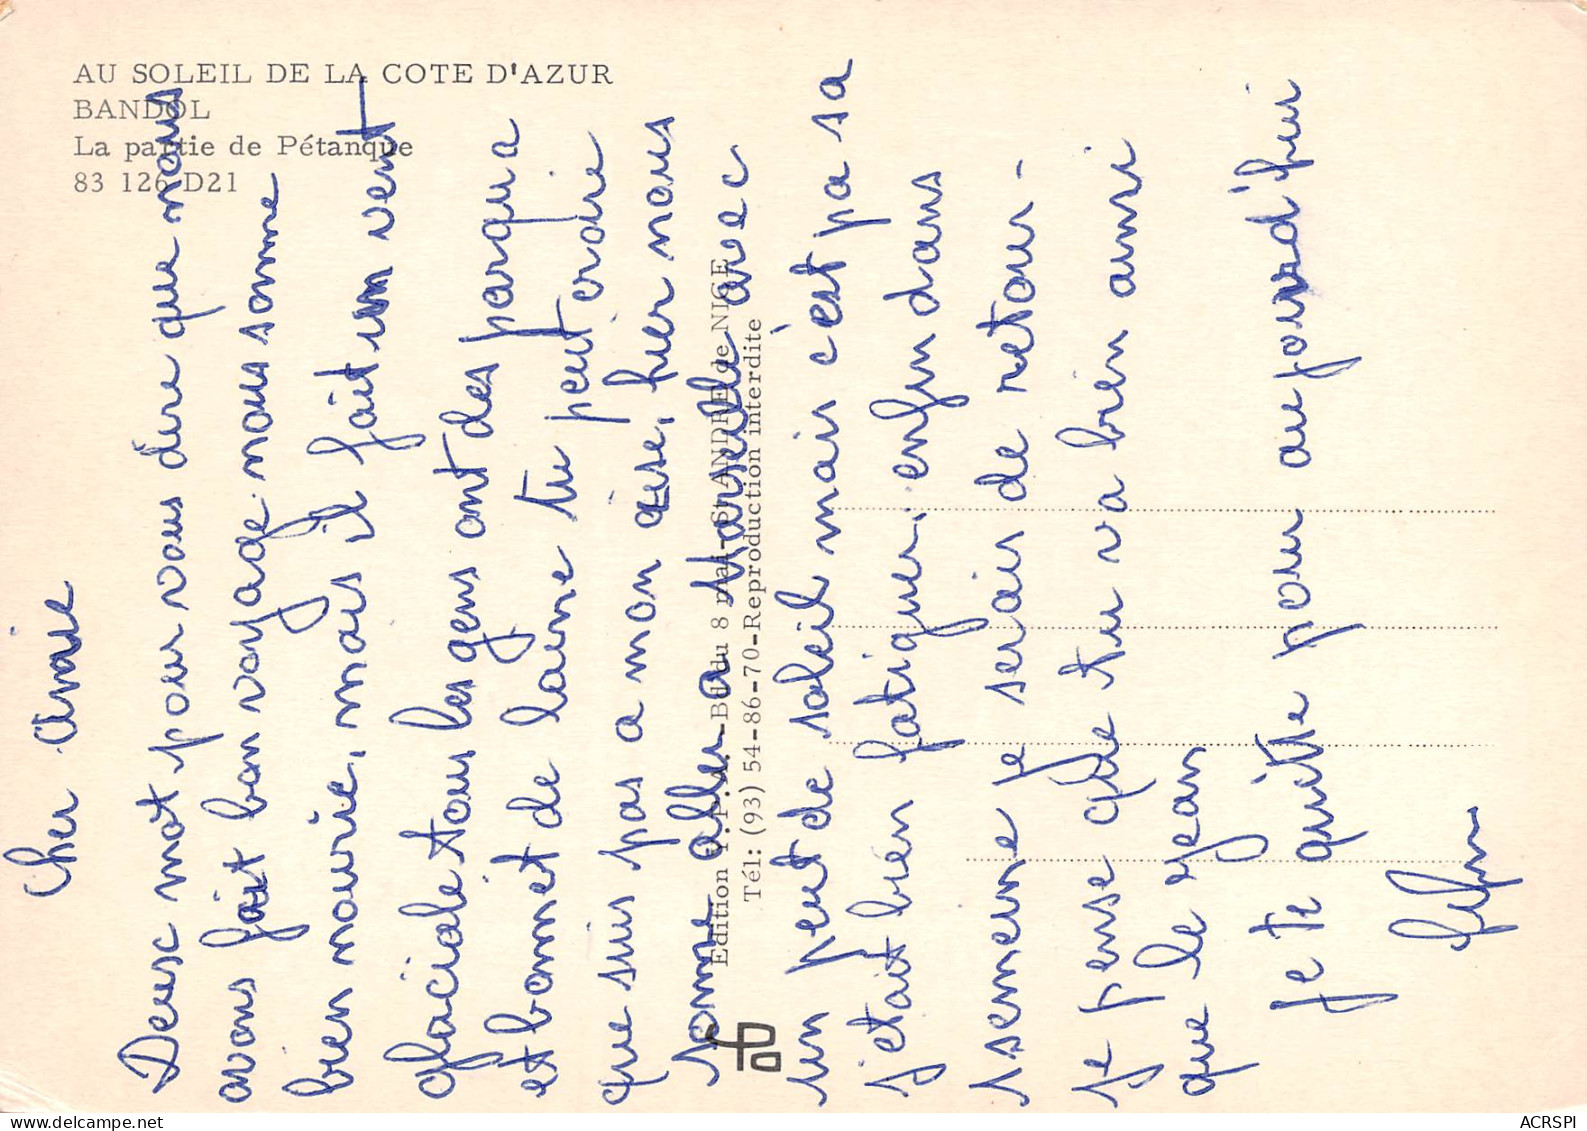 AU SOLEIL DE LA COTE D'AZUR
BANDOL
La partie de Pétanque
83 126 D21
Edition - Bd du 8 mai - St ANDRE de NICE
Tél: (93) 54-86-70-Reproduction interdite
Cher amie
Deux mot pour vous dire que nous
avons fait bon voyage nous somme
bien nourie, mais il fait un vent
glaciale tous les gens ont des parqu a
et bonnet de laine tu peut croire
que suis pas a mon aise, hier nous
somme aller a Marseille avec
un peut de soleil mais c'est pa sa
j'etait bien fatiguer, enfin dans
1 semeine je serais de retour -
je pense que tu va bien ainsi
que le Jean
je te quitte pour aujourd'hui
delcampe.net
ACRSPI